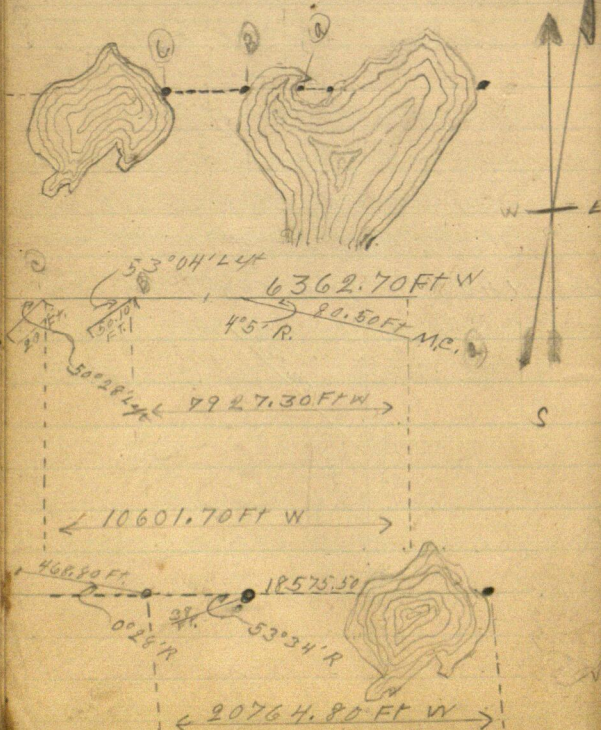 C B a
W E
53°04' Left
B
6362.70 Ft W
C
20 Ft.
50.10 FT.
4°5' R.
80.50 Ft M.C.
50°28' Left
7927.30 Ft W
S
10601.70 Ft W
468.80 Ft.
18575.50
0°28' R
53°34' R
20764.80 Ft W